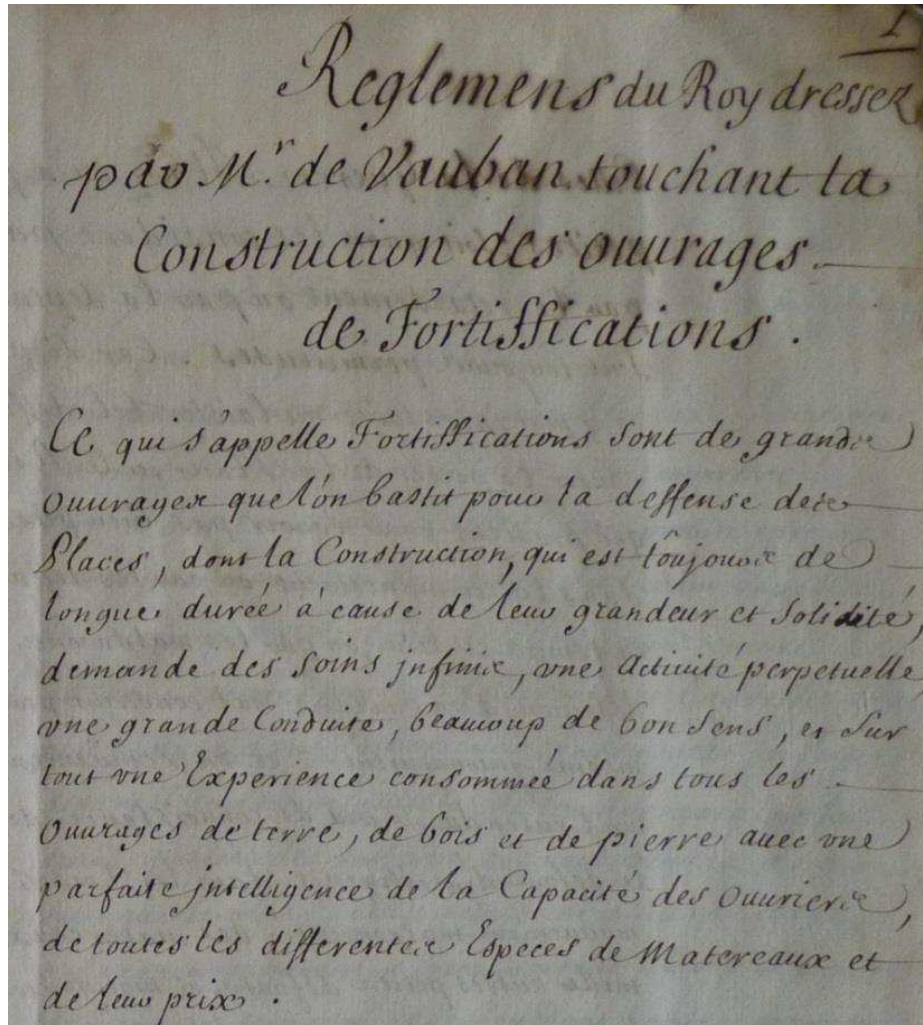 1
Reglemens du Roy dressez
par Mr. de Vauban touchant la
Construction des ouurages
de Fortiffications.
Ce qui s'appelle Fortiffications sont de grands
ouurages que l'on bastit pour la deffense des
Places, dont la Construction, qui est toujours de
longue durée à cause de leur grandeur et solidité,
demande des soins jnfinis, vne activité perpetuelle
vne grande Conduite, beaucoup de bon sens, et sur
tout vne Experience consommée dans tous les
ouurages de terre, de bois et de pierre auec vne
parfaite jntelligence de la Capacité des ouuriers,
de toutes les differentes Especes de Matereaux et
de leur prix.